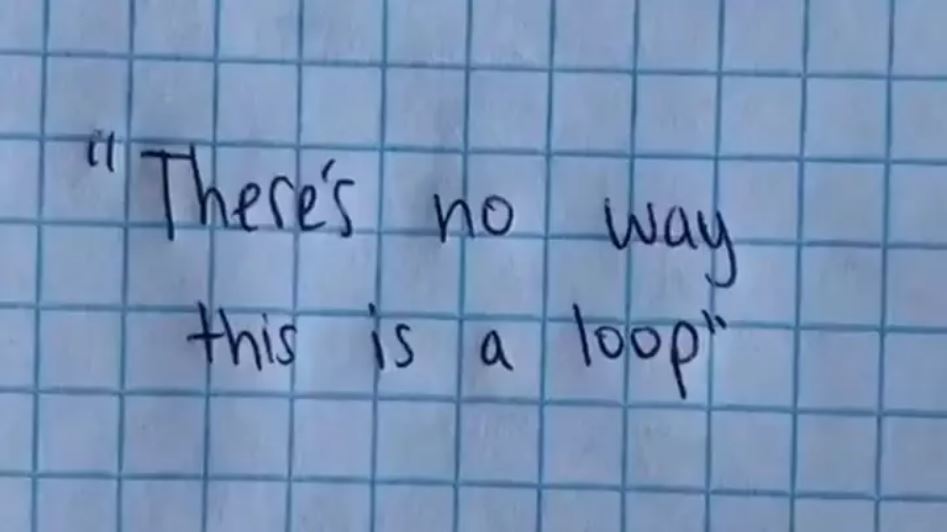 "There's no way
this is a loop"